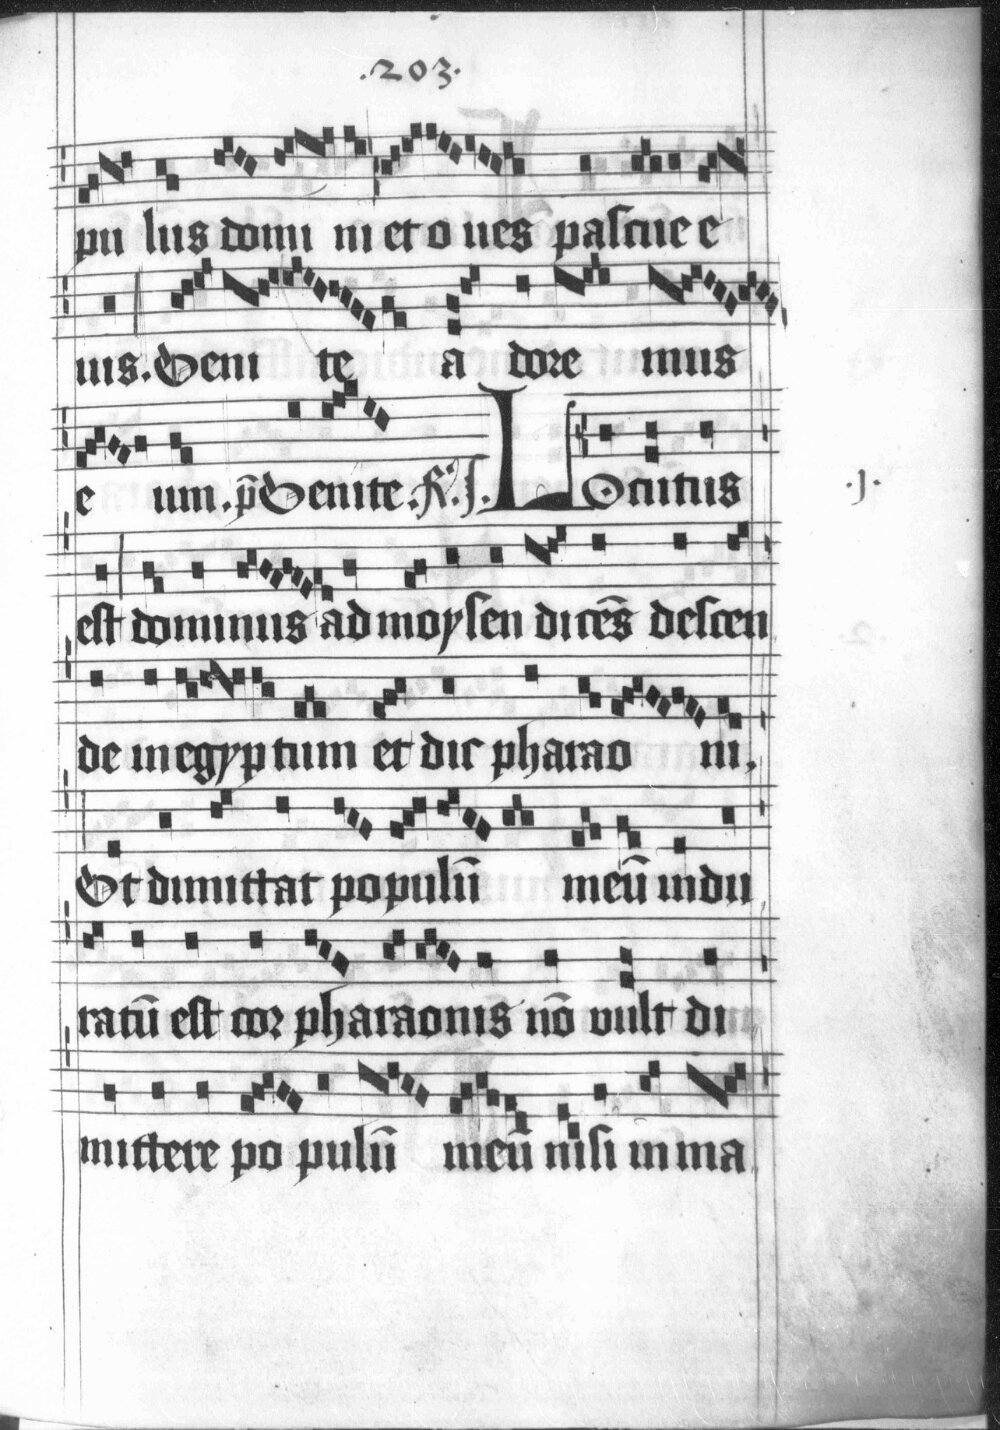 .203.
pu lus domi ni et o ues pascue e
ius. Veni te a dore mus
e um. p̄ Venite. R̃. j. Locutus
.j.
est dominus ad moysen dicēs descen
de in egyptum et dic pharao ni,
Et dimittat populū meū indu
ratū est cor pharaonis nō vult di
mittere po pulū meū nisi in ma